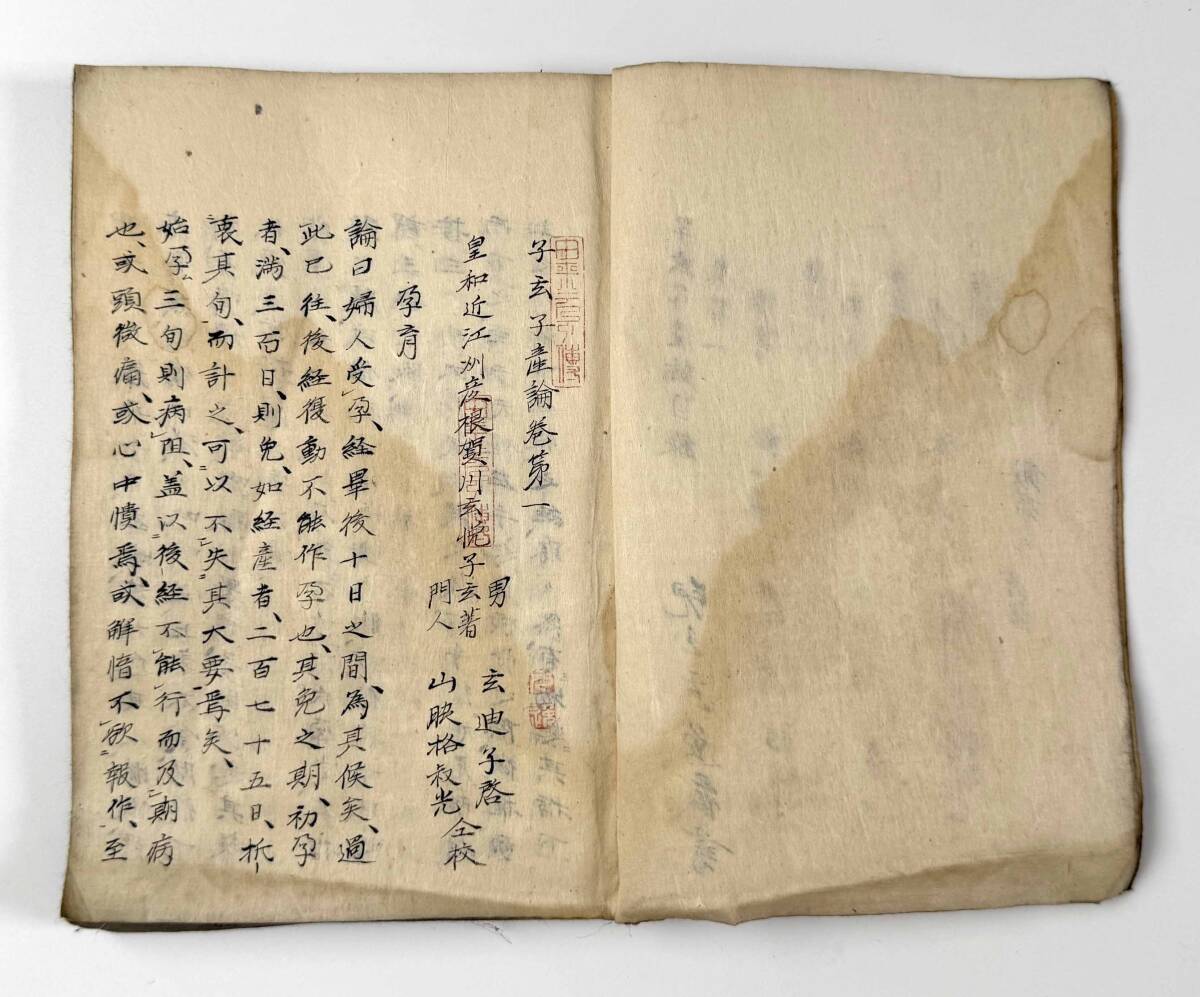 子玄子產論卷第一
皇和近江州彥根賀川玄悅子玄著
男 玄迪子啓
門人 山脇格叔光 仝校
孕育
論曰婦人受孕、経畢後十日之間、為其候矣、過
此已往、後経復動不能作孕也、其免之期、初孕
者、満三百日、則免、如経產者、二百七十五日、折
衷其旬、而計之、可以不失其大要焉矣、
始孕、三旬則病阻、盖以後経不能行而及期病
也、或頭微痛、或心中憒焉、或解惰不欲報作、至